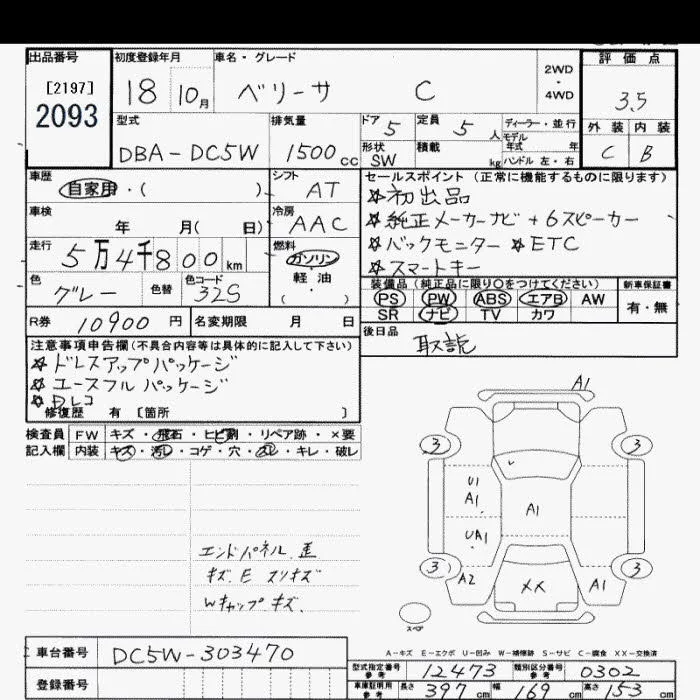 出品番号
[2197]
2093
初度登録年月
18 10月
車名・グレード
ベリーサ C
2WD
・
4WD
評価点
3.5
外装 内装
C B
型式
DBA-DC5W
排気量
1500cc
ドア 5
定員 5人
ディーラー・並行
モデル
年式 年
形状 SW
積載 kg
ハンドル 左・右
車歴
自家用・( )
シフト
AT
車検
年 月( 日)
冷房
AAC
走行
5万4千800km
燃料
ガソリン
・
軽油
・
( )
色
グレー
色替
色コード
32S
R券 10900円
名変期限 月 日
セールスポイント(正常に機能するものに限ります)
☆初出品
☆純正メーカーナビ+6スピーカー
☆バックモニター ☆ETC
☆スマートキー
装備品(純正品に限り○をつけてください)
PS PW ABS エアB AW
SR ナビ TV カワ
新車保証書
有・無
後日品
取説
注意事項申告欄(不具合内容等は具体的に記入して下さい)
☆ドレスアップパッケージ
☆ユースフルパッケージ
☆Dレコ
修復歴 有 [箇所 ]
検査員 FW キズ・飛石・ヒビ割・リペア跡・×要
記入欄 内装 キズ・汚レ・コゲ・穴・スレ・キレ・破レ
エンドパネル歪
キズ.E スリキズ
Wキャップキズ.
A1
3 3
U1
A1
A1
UA1
3 3
A2 XX A1
スペア
A-キズ E-エクボ U-凹み W-補修跡 S-サビ C-腐食 XX-交換済
車台番号 DC5W-303470
登録番号
型式指定番号
参考
12473
類別区分番号
参考
0302
車庫証明用
参考
長さ 397cm 幅 169cm 高さ 153cm